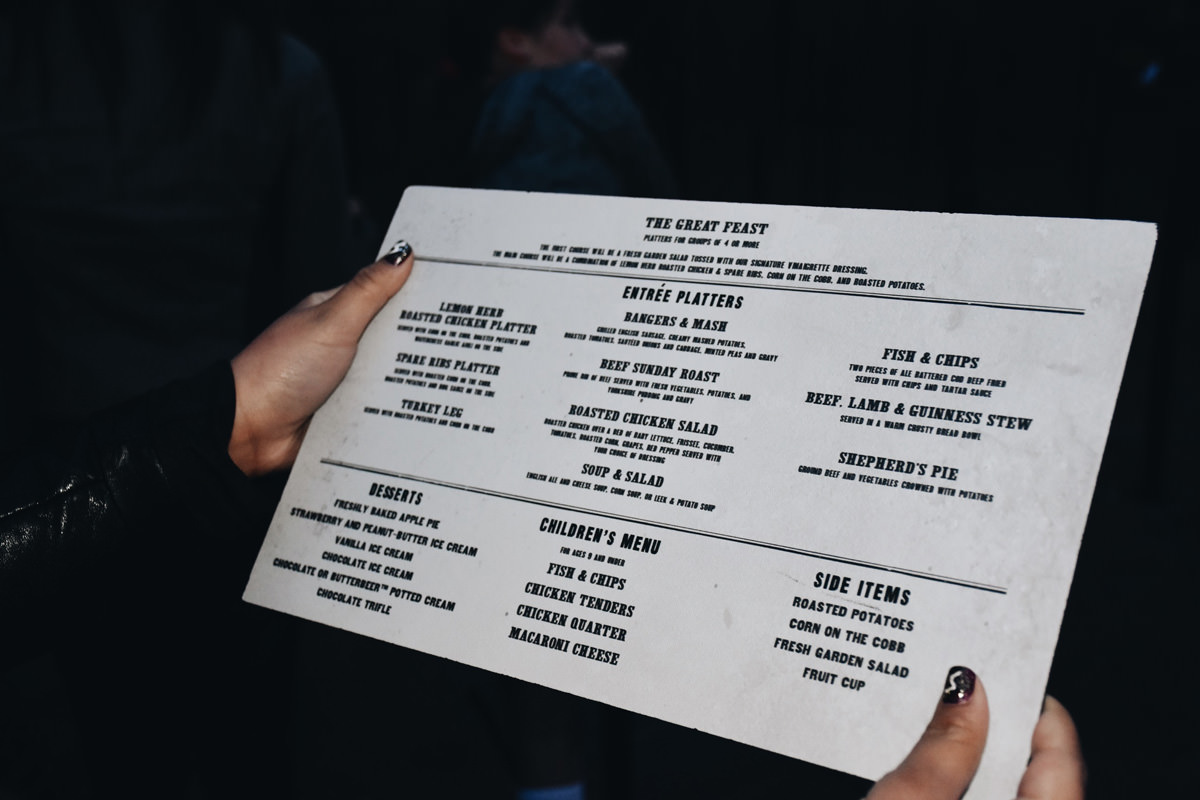 THE GREAT FEAST
PLATTERS FOR GROUPS OF 4 OR MORE
THE FIRST COURSE WILL BE A FRESH GARDEN SALAD TOSSED WITH OUR SIGNATURE VINAIGRETTE DRESSING.
THE MAIN COURSE WILL BE A COMBINATION OF LEMON HERB ROASTED CHICKEN & SPARE RIBS, CORN ON THE COBB, AND ROASTED POTATOES.
ENTRÉE PLATTERS
LEMON HERB
ROASTED CHICKEN PLATTER
SERVED WITH CORN ON THE COBB, ROASTED POTATOES AND
ON THE SIDE
SPARE RIBS PLATTER
SERVED WITH ROASTED CORN ON THE COBB,
ROASTED POTATOES AND SAUCE ON THE SIDE
TURKEY LEG
SERVED WITH ROASTED POTATOES AND CORN ON THE COBB
BANGERS & MASH
GRILLED ENGLISH SAUSAGE, CREAMY MASHED POTATOES,
ROASTED TOMATOES, SAUTÉED ONIONS AND CABBAGE, MINTED PEAS AND GRAVY
BEEF SUNDAY ROAST
PRIME RIB OF BEEF SERVED WITH FRESH VEGETABLES, POTATOES, AND
YORKSHIRE PUDDING AND GRAVY
ROASTED CHICKEN SALAD
ROASTED CHICKEN OVER A BED OF BABY LETTUCE, FRISSEE, CUCUMBER,
TOMATOES, ROASTED CORN, GRAPES, RED PEPPER SERVED WITH
YOUR CHOICE OF DRESSING
SOUP & SALAD
ENGLISH ALE AND CHEESE SOUP, CORN SOUP, OR LEEK & POTATO SOUP
FISH & CHIPS
TWO PIECES OF ALE BATTERED COD DEEP FRIED
SERVED WITH CHIPS AND TARTAR SAUCE
BEEF, LAMB & GUINNESS STEW
SERVED IN A WARM CRUSTY BREAD BOWL
SHEPHERD'S PIE
GROUND BEEF AND VEGETABLES CROWNED WITH POTATOES
DESSERTS
FRESHLY BAKED APPLE PIE
STRAWBERRY AND PEANUT-BUTTER ICE CREAM
VANILLA ICE CREAM
CHOCOLATE ICE CREAM
CHOCOLATE OR BUTTERBEER™ POTTED CREAM
CHOCOLATE TRIFLE
CHILDREN'S MENU
FOR AGES 9 AND UNDER
FISH & CHIPS
CHICKEN TENDERS
CHICKEN QUARTER
MACARONI CHEESE
SIDE ITEMS
ROASTED POTATOES
CORN ON THE COBB
FRESH GARDEN SALAD
FRUIT CUP